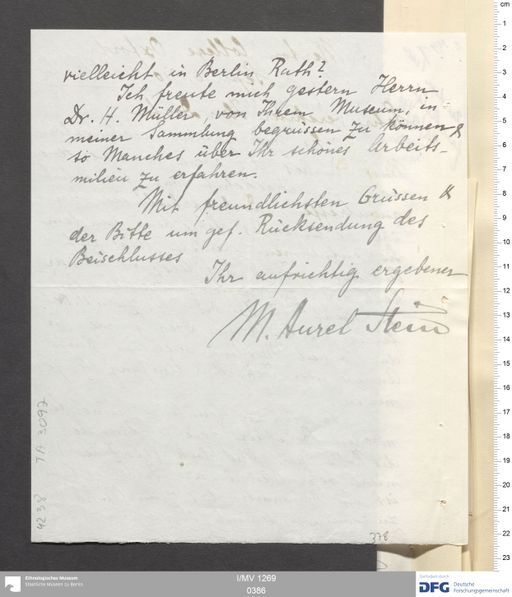 vielleicht in Berlin Rath?
Ich freute mich gestern Herrn
Dr. H. Müller, von Ihrem Museum, in
meiner Sammlung begrüssen zu können &
so Manches über Ihr schönes Arbeits-
milieu zu erfahren.
Mit freundlichsten Grüssen &
der Bitte um gef. Rücksendung des
Beischlusses
Ihr aufrichtig ergebener
M. Aurel Stein
378
Ethnologisches Museum
Staatliche Museen zu Berlin
I/MV 1269
0386
DFG
Deutsche
Forschungsgemeinschaft
cm
1
2
3
4
5
6
7
8
9
10
11
12
13
14
15
16
17
18
19
20
21
22
23